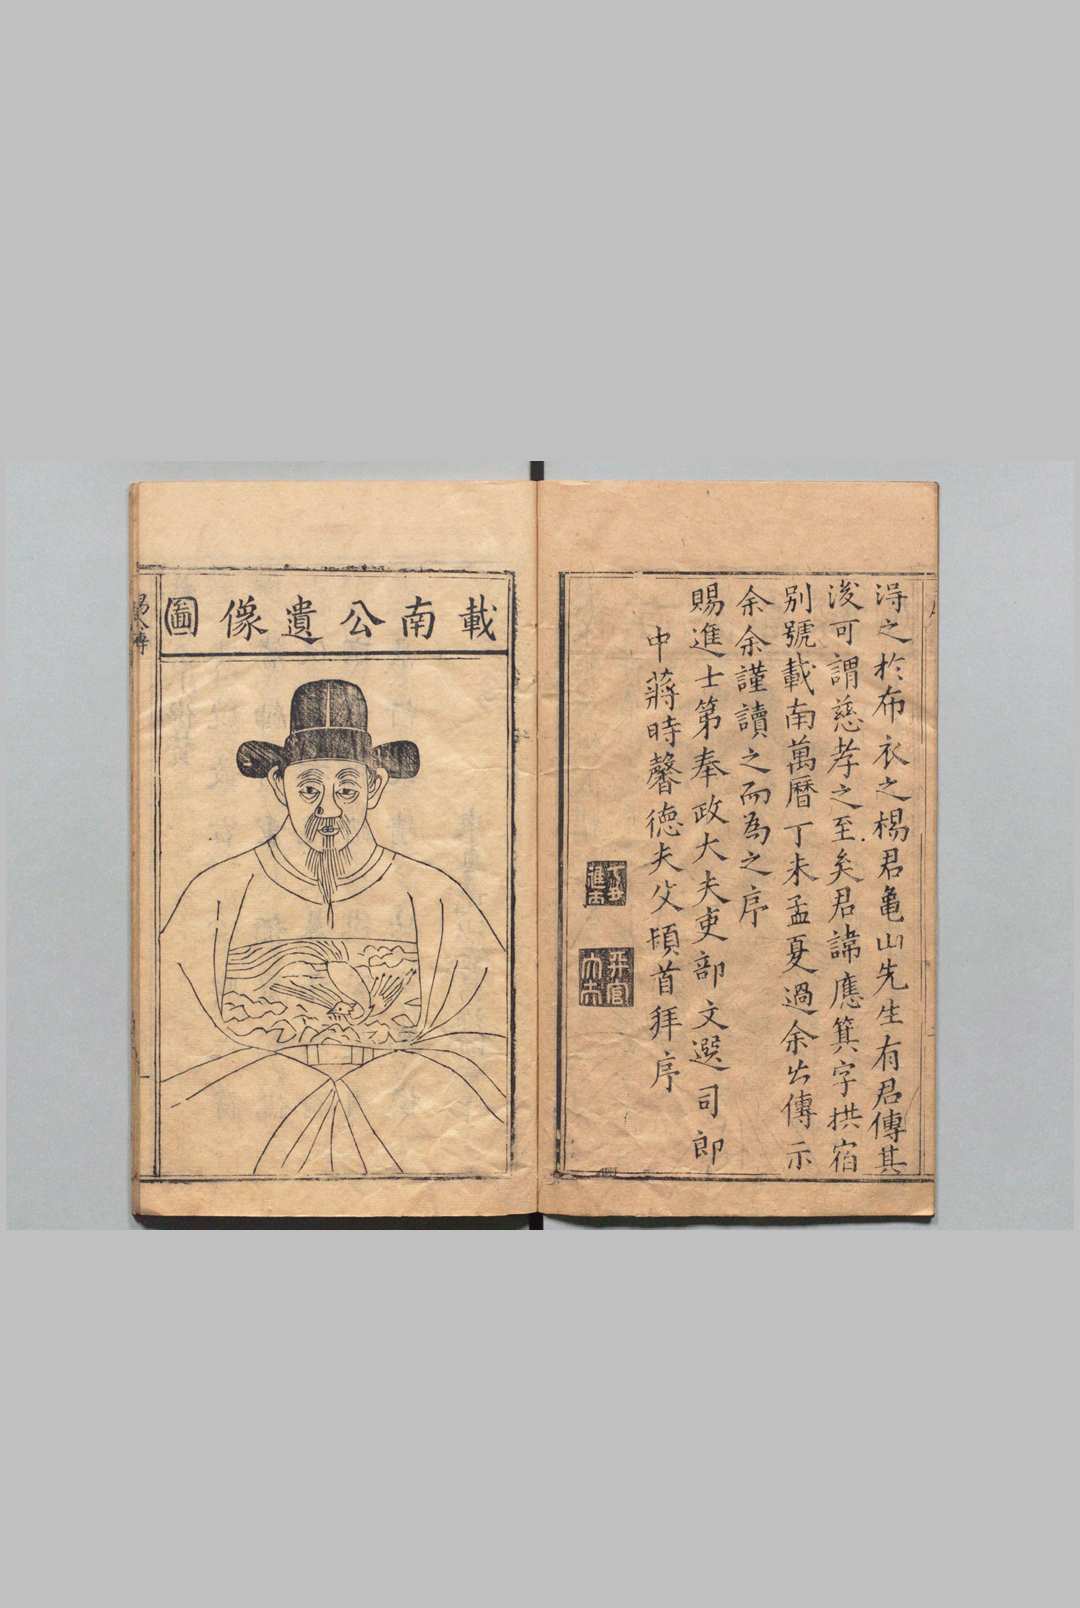 淂之於布衣之楊君龜山先生有君傳其
後可謂慈孝之至矣君諱應箕字拱宿
別號載南萬曆丁未孟夏過余出傳示
余余謹讀之而為之序
賜進士第奉政大夫吏部文選司郎
中蔣時馨德夫父頓首拜序
載南公遺像圖